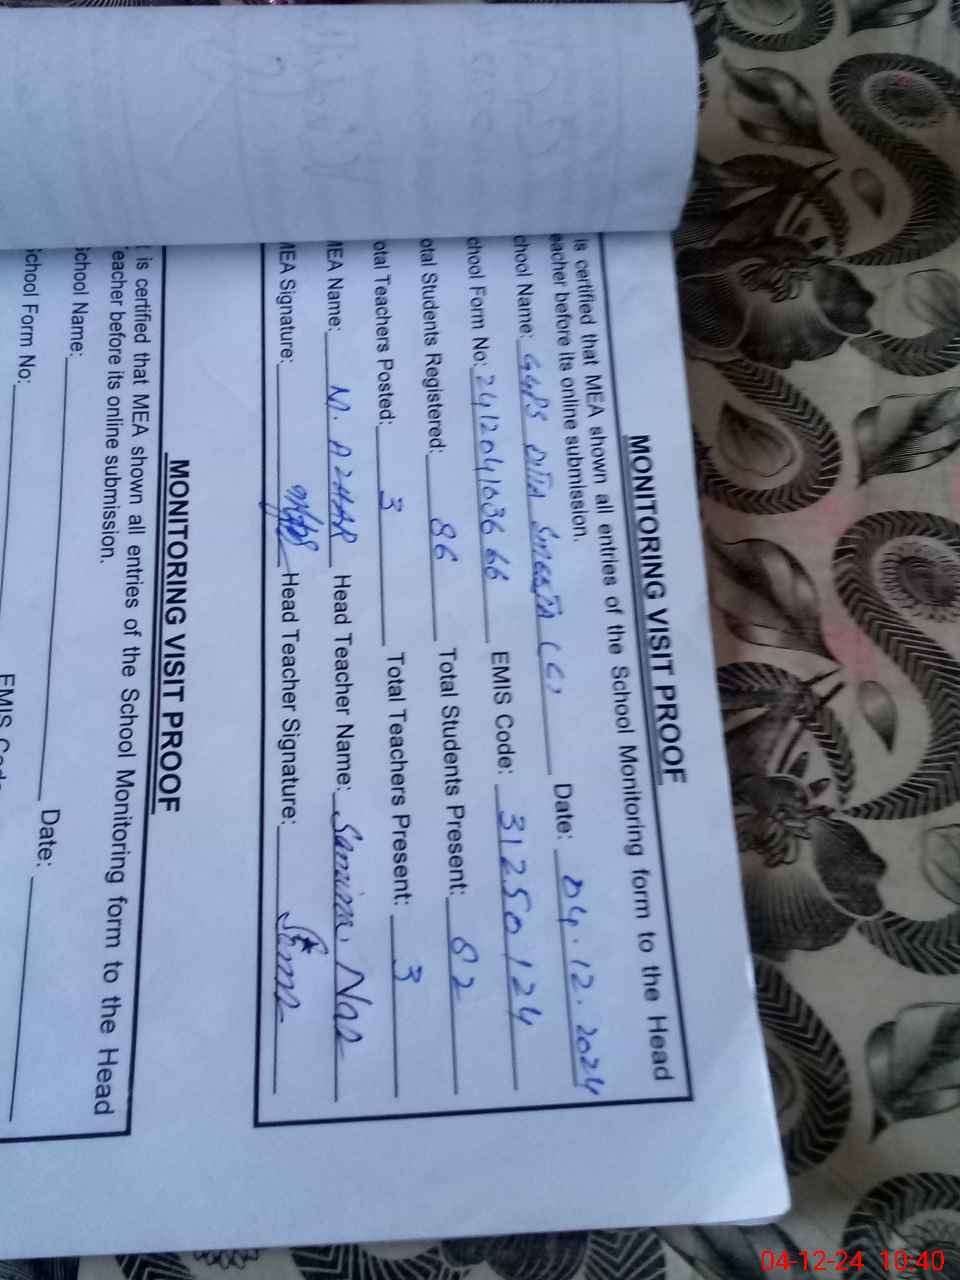 MONITORING VISIT PROOF
is certified that MEA shown all entries of the School Monitoring form to the Head
eacher before its online submission.
chool Name: GGPS DITTA (C) Date: 04.12.2024
chool Form No: 24120416366 66 EMIS Code: 31250124
otal Students Registered: 86 Total Students Present: 82
otal Teachers Posted: 3 Total Teachers Present: 3
MEA Name: M. AZHAR Head Teacher Name: Samina Naz
MEA Signature: Head Teacher Signature:
MONITORING VISIT PROOF
is certified that MEA shown all entries of the School Monitoring form to the Head
eacher before its online submission.
School Name: Date:
School Form No: EMIS Code
04-12-24 10:40